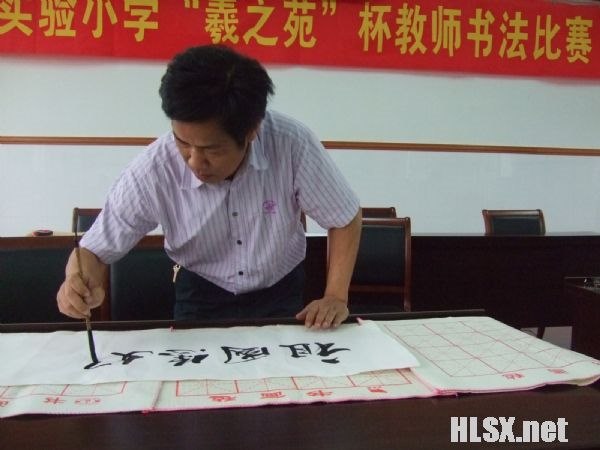 实验小学“羲之苑”杯教师书法比赛
祖國您好
HLSX.net